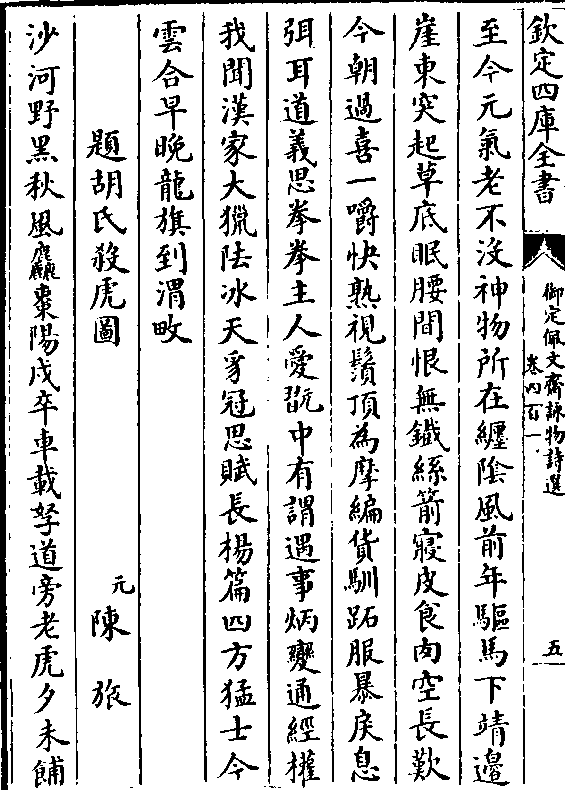 欽定四庫全書
御定佩文齋詠物詩選
卷四百一
五
至今元氣老不沒神物所在纏陰風前年驅馬下靖邉
崖東突起草底眠腰間恨無鐡絲箭寢皮食肉空長歎
今朝過喜一嚼快熟視鬚頂為摩編貨馴跖服暴戾息
弭耳道義思拳拳主人愛翫中有謂遇事炳變通經權
我聞漢家大獵陹冰天豸冠思賦長楊篇四方猛士今
雲合早晚龍旗到渭畋
題胡氏殺虎圖
元陳旅
沙河野黑秋風麤棗陽戍卒車載孥道旁老虎夕未餔